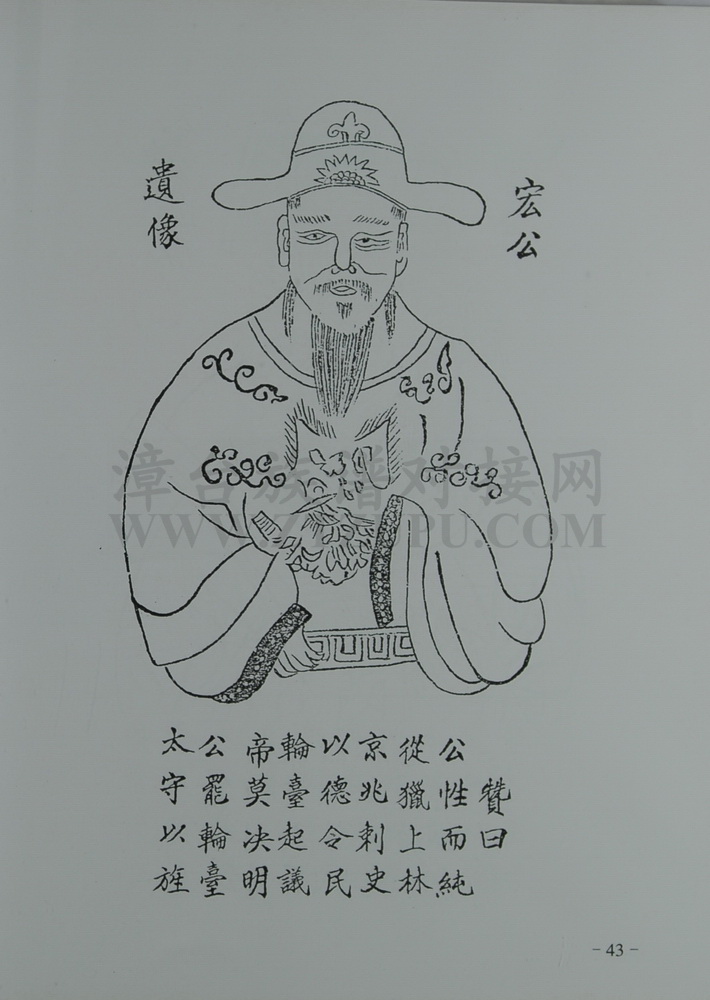 宏公
遺像
漳台族谱对接网
贊曰
公性而純
從獵上林
京兆刺史
以德令民
輪臺起議
帝莫决明
公罷輪臺
太守以旌
- 43 -